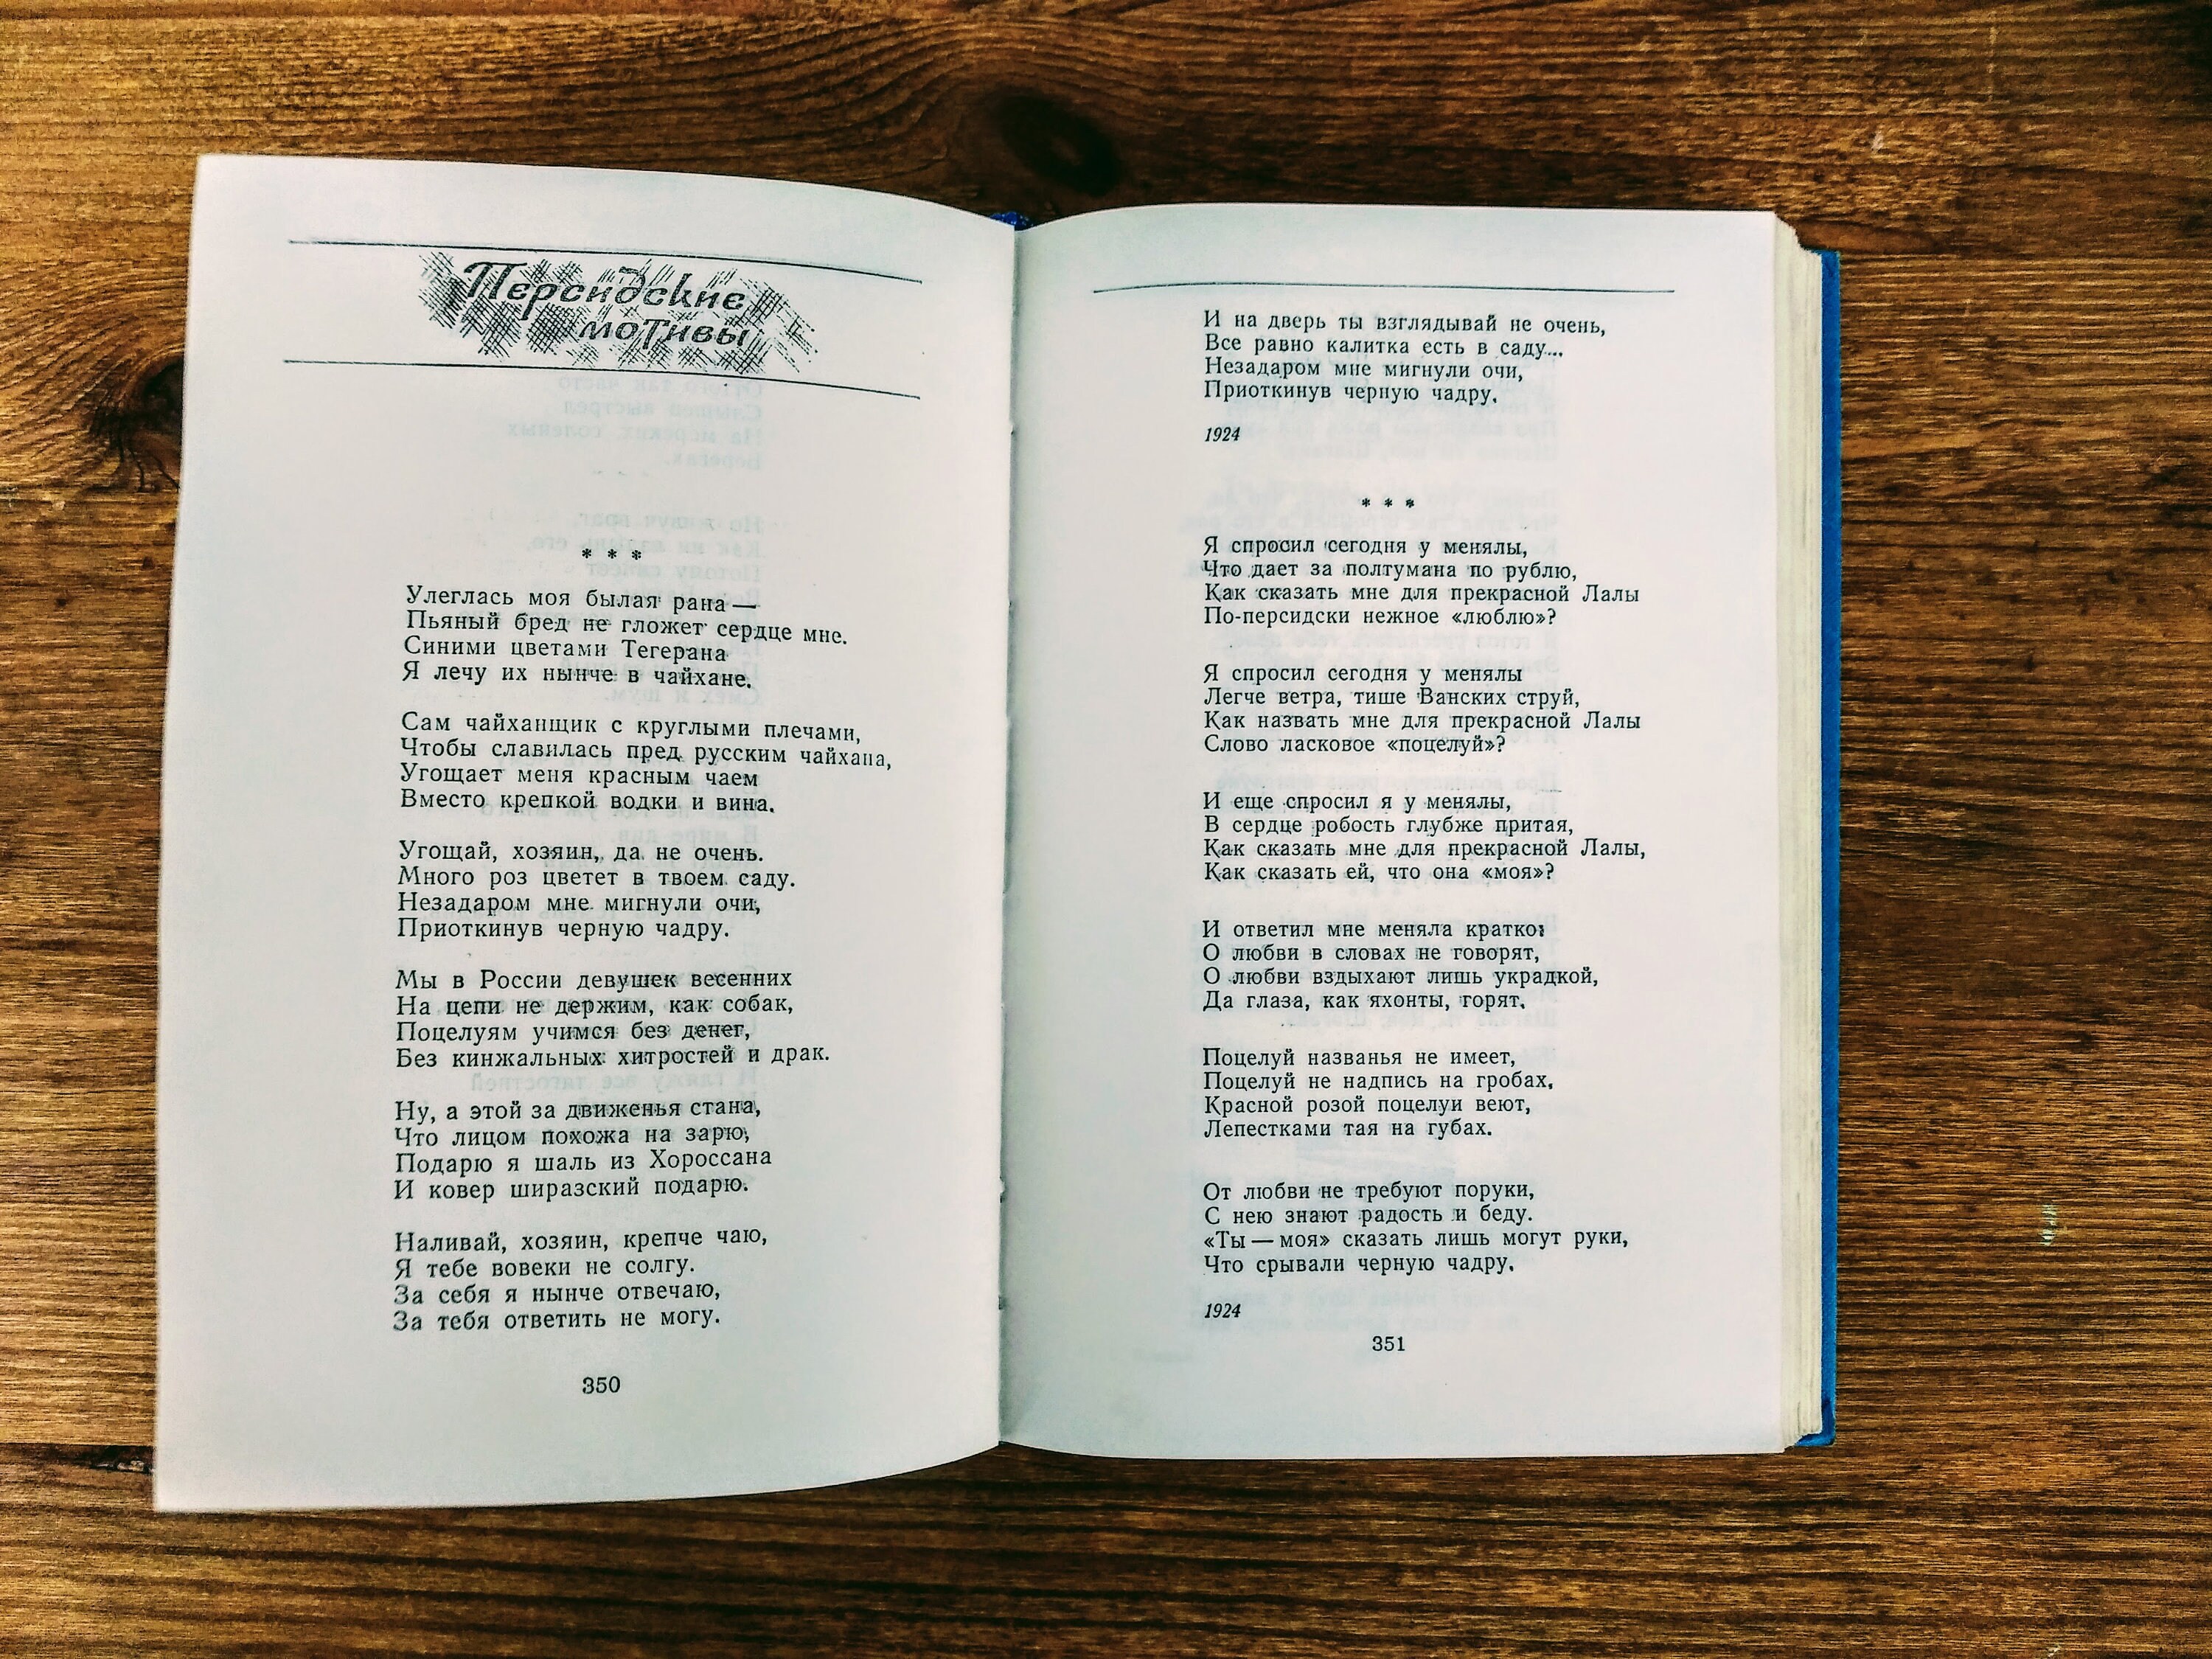 Персидские
мотивы
* * *
Улеглась моя былая рана —
Пьяный бред не гложет сердце мне.
Синими цветами Тегерана
Я лечу их нынче в чайхане.
Сам чайханщик с круглыми плечами,
Чтобы славилась пред русским чайхана,
Угощает меня красным чаем
Вместо крепкой водки и вина.
Угощай, хозяин, да не очень.
Много роз цветет в твоем саду.
Незадаром мне мигнули очи,
Приоткинув черную чадру.
Мы в России девушек весенних
На цепи не держим, как собак,
Поцелуям учимся без денег,
Без кинжальных хитростей и драк.
Ну, а этой за движенья стана,
Что лицом похожа на зарю,
Подарю я шаль из Хороссана
И ковер ширазский подарю.
Наливай, хозяин, крепче чаю,
Я тебе вовеки не солгу.
За себя я нынче отвечаю,
За тебя ответить не могу.
350
И на дверь ты взглядывай не очень,
Все равно калитка есть в саду...
Незадаром мне мигнули очи,
Приоткинув черную чадру.
1924
* * *
Я спросил сегодня у менялы,
Что дает за полтумана по рублю,
Как сказать мне для прекрасной Лалы
По-персидски нежное «люблю»?
Я спросил сегодня у менялы
Легче ветра, тише Ванских струй,
Как назвать мне для прекрасной Лалы
Слово ласковое «поцелуй»?
И еще спросил я у менялы,
В сердце робость глубже притая,
Как сказать мне для прекрасной Лалы,
Как сказать ей, что она «моя»?
И ответил мне меняла кратко:
О любви в словах не говорят,
О любви вздыхают лишь украдкой,
Да глаза, как яхонты, горят.
Поцелуй названья не имеет,
Поцелуй не надпись на гробах.
Красной розой поцелуи веют,
Лепестками тая на губах.
От любви не требуют поруки,
С нею знают радость и беду.
«Ты — моя» сказать лишь могут руки,
Что срывали черную чадру.
1924
351